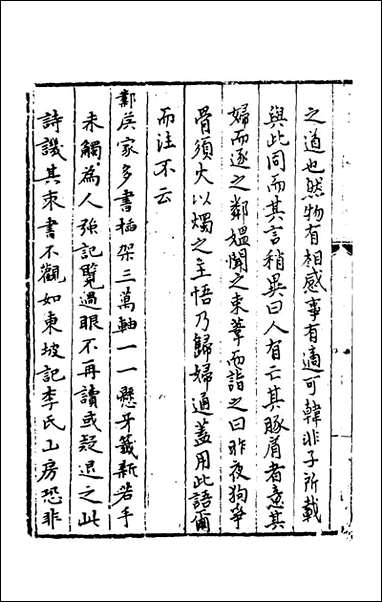 之道也然物有相感事有適可韓非子所載
與此同而其言稍異曰人有亡其豚肩者意其
婦而逐之鄰媼聞之束葦而詣之曰昨夜狗爭
骨須火以燭之主悟乃歸婦通蓋用此語爾
而注不云
鄴侯家多書插架三萬軸一一懸牙籤新若手
未觸為人强記覽過眼不再讀或疑退之此
詩譏其束書不觀如東坡記李氏山房恐非